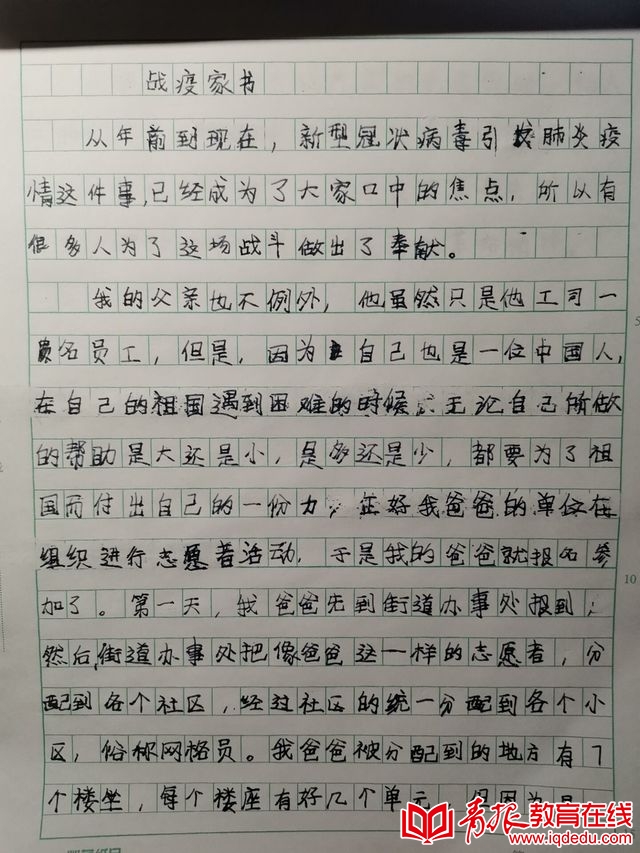 战疫家书
从年前到现在，新型冠状病毒引发肺炎疫
情这件事，已经成为了大家口中的焦点，所以有
很多人为了这场战斗做出了奉献。
我的父亲也不例外，他虽然只是他工司一
名员工，但是，因为自己也是一位中国人，
在自己的祖国遇到困难的时候，无论自己所做
的帮助是大还是小，是多还是少，都要为了祖
国而付出自己的一份力，正好我爸爸的单位在
组织进行志愿者活动，于是我的爸爸就报名参
加了。第一天，我爸爸先到街道办事处报到；
然后，街道办事处把像爸爸这一样的志愿者，分
配到各个社区，经过社区的统一分配到各个小
区，俗称网格员。我爸爸被分配到的地方有7
个楼坐，每个楼座有好几个单元
5
10
青报教育在线
www.iqdedu.com